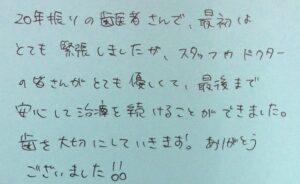 20年振りの歯医者さんで、最初は
とても緊張しましたが、スタッフやドクター
の皆さんがとても優しくて、最後まで
安心して治療を続けることができました。
歯を大切にしていきます。ありがとう
ございました!!